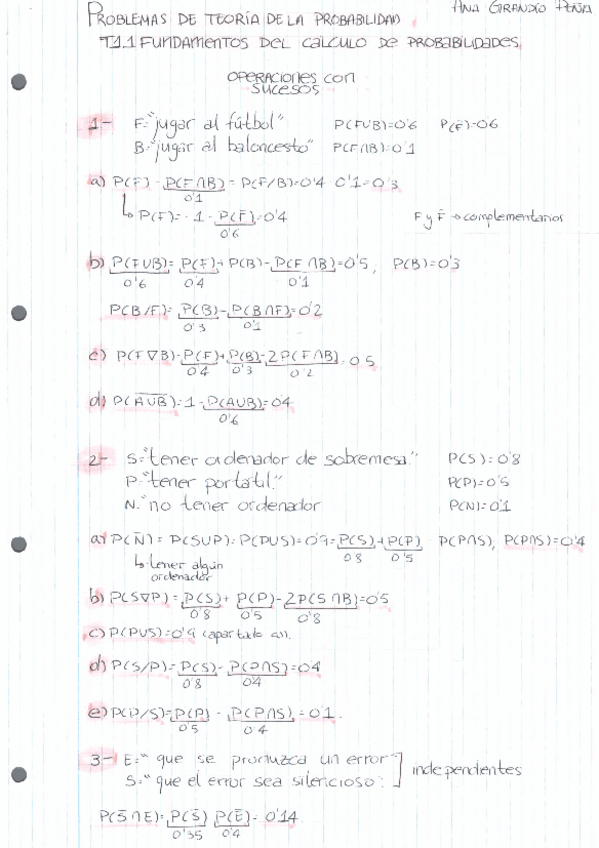 PROBLEMAS DE TEORÍA DE LA PROBABILIDAD
ANA GRANDÍO PEÑA
T1.1 FUNDAMENTOS DEL CALCULO DE PROBABILIDADES
OPERACIONES CON
SUCESOS
1- F="jugar al fútbol" P(F∪B)=0'6 P(F̄)=0'6
B="jugar al baloncesto" P(F∩B)=0'1
a) P(F) - P(F∩B) = P(F/B)=0'4 0'1=0'3
0'1
↳ P(F)= 1 - P(F̄)=0'4 F y F̄ → complementarios
0'6
b) P(F∪B)= P(F)+P(B)-P(F∩B)=0'5, P(B)=0'3
0'6 0'4 0'1
P(B/F)= P(B)-P(B∩F)=0'2
0'3 0'1
c) P(F∇B)=P(F)+P(B)-2P(F∩B)=0'5
0'4 0'3 0'2
d) P(A∪B)=1-P(A∪B)=0'4
0'6
2- S="tener ordenador de sobremesa" P(S)=0'8
P="tener portátil" P(P)=0'5
N="no tener ordenador P(N)=0'1
a) P(N̄) = P(S∪P)=P(P∪S)=0'9=P(S)+P(P) P(P∩S), P(P∩S)=0'4
0'8 0'5
↳ tener algún
ordenador
b) P(S∇P)=P(S)+P(P)-2P(S∩B)=0'5
0'8 0'5 0'8
c) P(P∪S)=0'9 (apartado a)).
d) P(S/P)=P(S)-P(P∩S)=0'4
0'8 0'4
e) P(P/S)=P(P) - P(P∩S)=0'1.
0'5 0'4
3- E="que se produzca un error"
S="que el error sea silencioso" independientes
P(S̄∩E)=P(S̄) P(Ē)=0'14
0'35 0'4